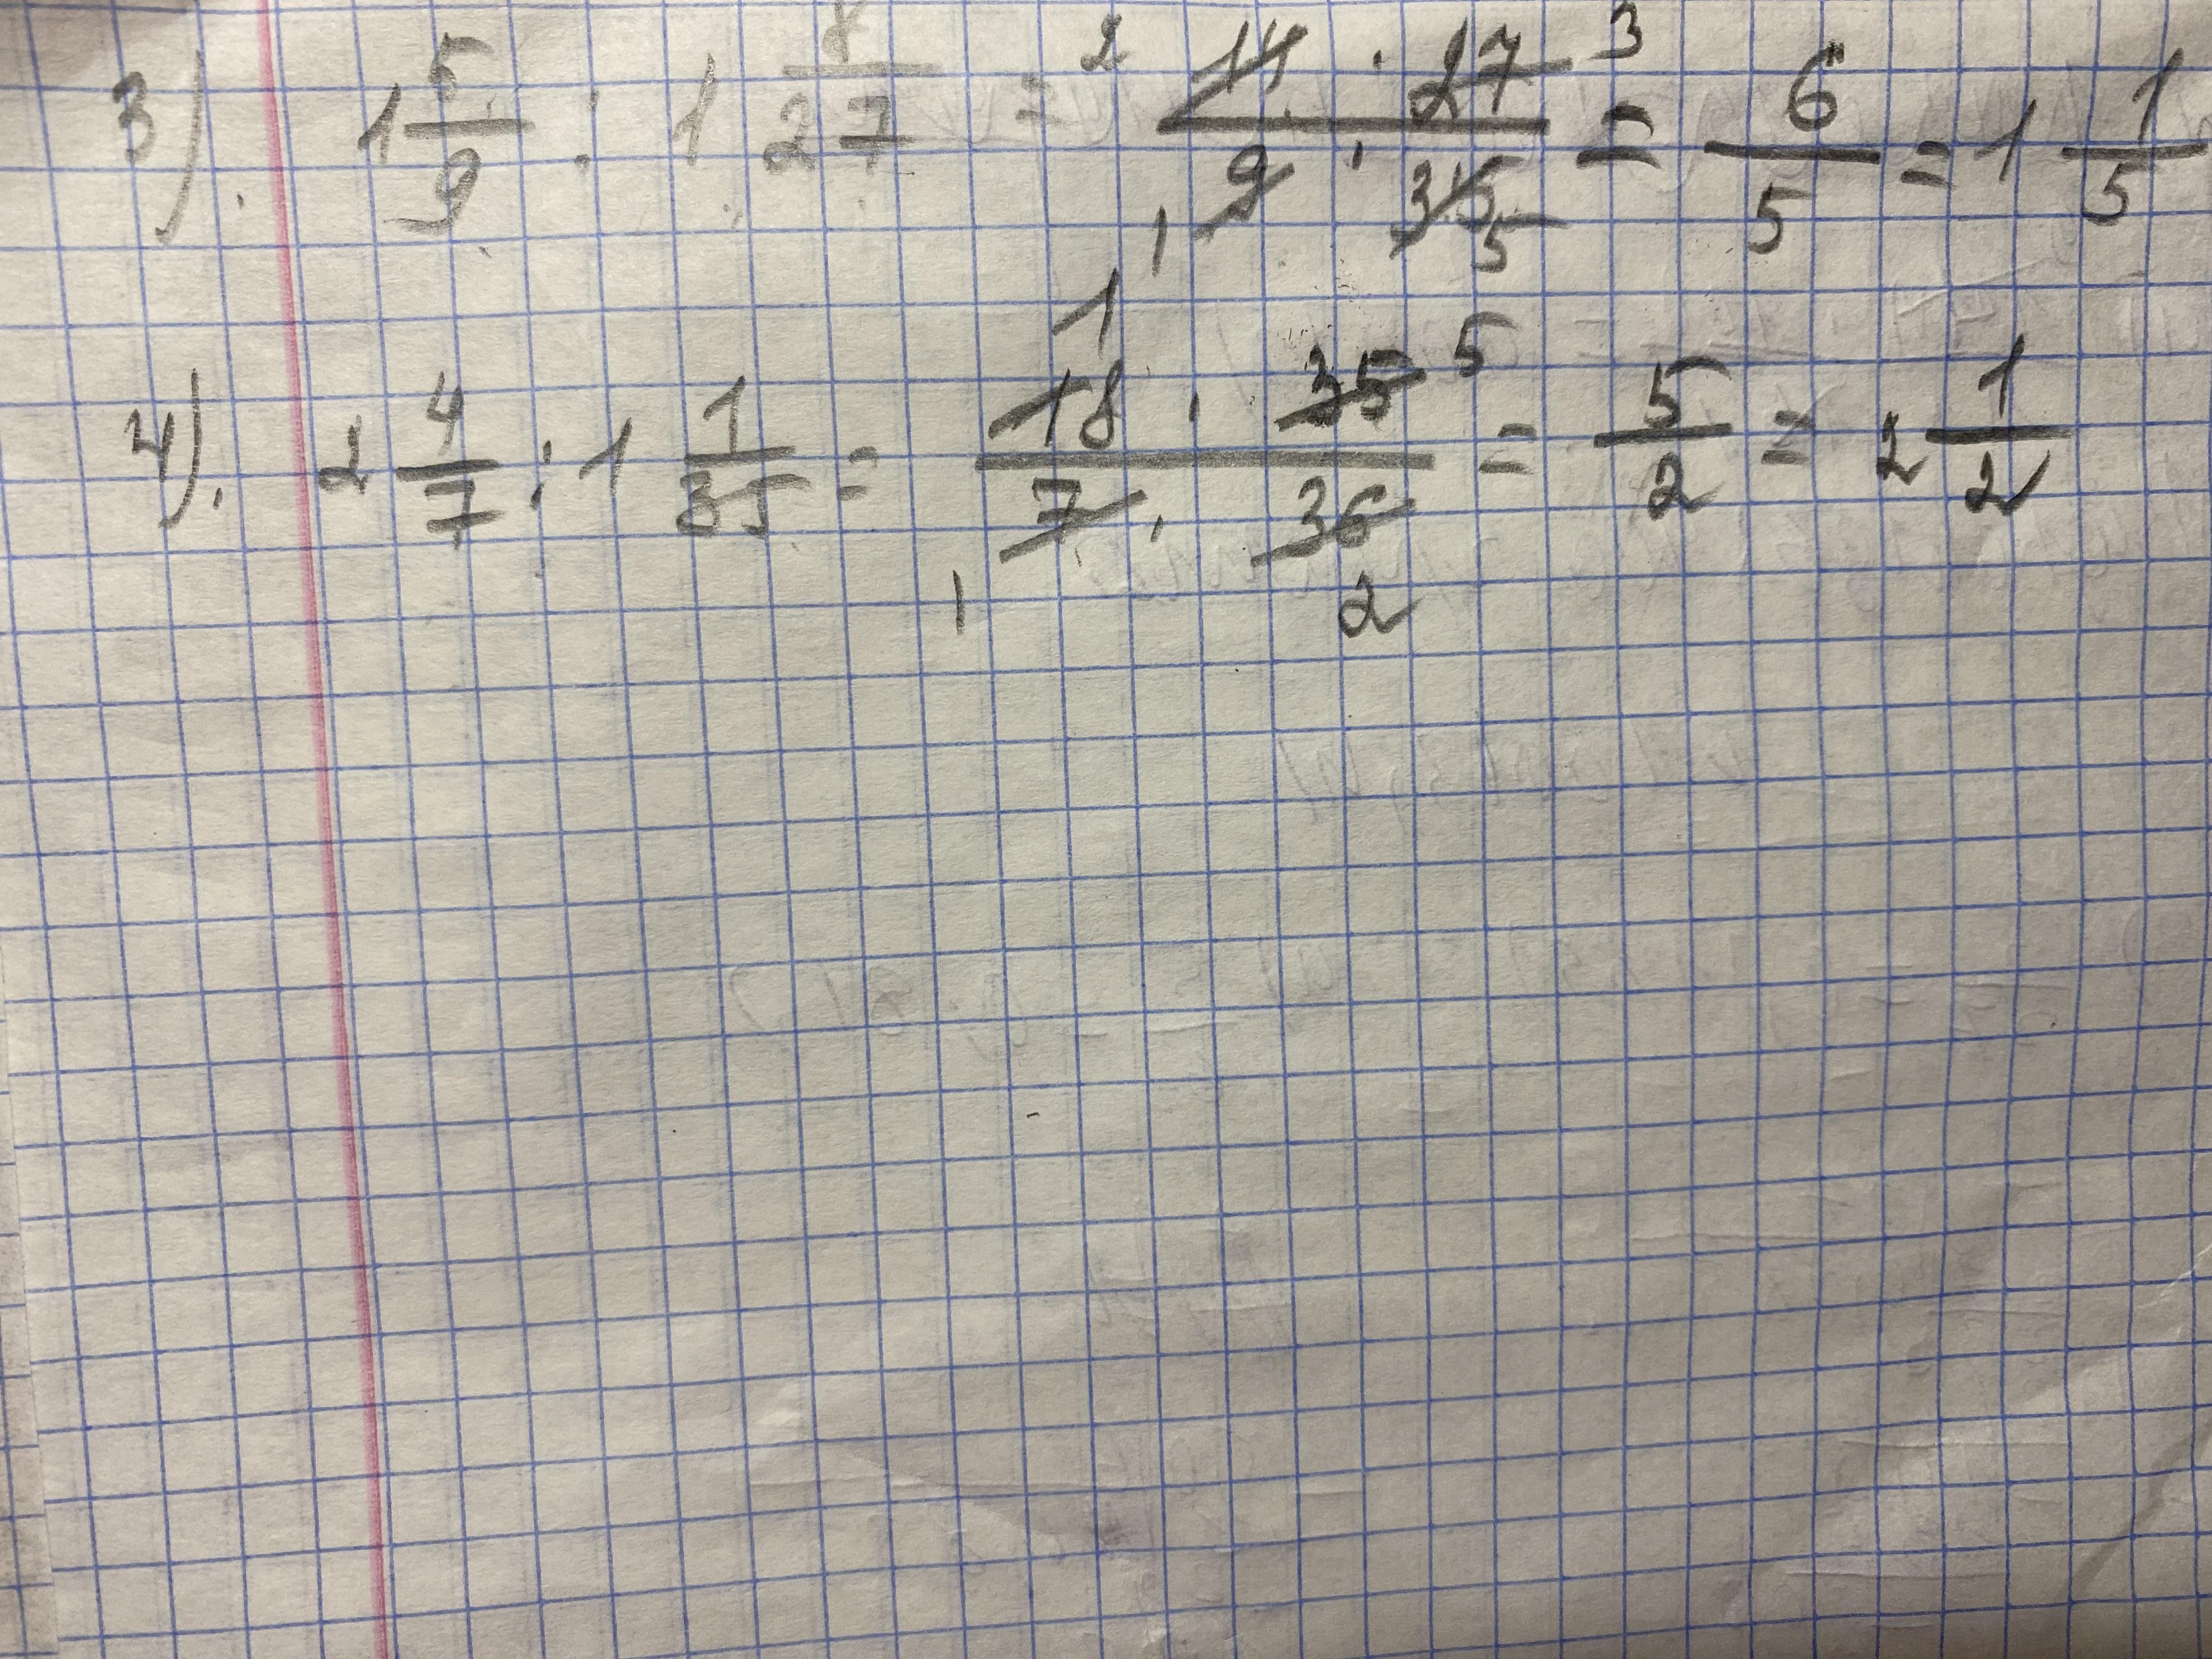 3). 1 5/9 : 1 8/27 = 2 14 · 27 3 / 1 9 · 35 5 = 6/5 = 1 1/5
4). 2 4/7 : 1 1/35 = 1 18 · 35 5 / 1 7 · 36 2 = 5/2 = 2 1/2